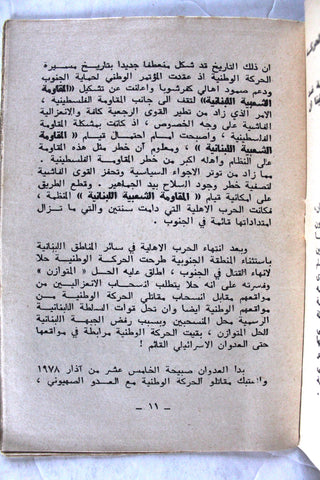 ان ذلك التاريخ قد شكل منعطفا جديدا بتاريخ مسيرة
الحركة الوطنية اذ عقدت المؤتمر الوطني لحماية الجنوب
ودعم صمود اهالي كفرشوبا واعلنت عن تشكيل «المقاومة
الشعبية اللبنانية» لتقف الى جانب المقاومة الفلسطينية ،
الامر الذي زاد من تطير القوى الرجعية كافة والانعزالية
الفاشية على وجه الخصوص ، اذ كانت بمشكلة المقاومة
الفلسطينية ، واصبحت امام احتمال قيام « المقاومة
الشعبية اللبنانية » ، ومعلوم أن خطر مثل هذه المقاومة
على النظام وأهله اكبر من خطر المقاومة الفلسطينية .
مما زاد من توتر الاجواء السياسية وتحفز القوى الفاشية
لتصفية خطر وجود السلاح بيد الجماهير . وقطع الطريق
على قيام « المقاومة الشعبية اللبنانية » المنظمة ،
فكانت الحرب الاهلية التي دامت سنتين والتي ما تزال
امتداداتها قائمة في الجنوب .
وبعد انتهاء الحرب الاهلية في سائر المناطق اللبنانية
باستثناء المنطقة الجنوبية طرحت الحركة الوطنية حلا
لانهاء القتال في الجنوب ، اطلق عليه الحل « المتوازن »
وفسرته على انه حلا يتطلب انسحاب الانعزاليين من
مواقعهم مقابل انسحاب مقاتلي الحركة الوطنية من
مواقعهم ايضا وان تحل قوات السلطة اللبنانية
الرسمية محل المنسحبين وبسبب رفض الجبهة اللبنانية
الحل المتوازن ، بقيت الحركة الوطنية مرابطة في مواقعها
حتى العدوان الاسرائيلي القائم !
بدا العدوان صبيحة الخامس عشر من آذار ١٩٧٨
واشتبك مقاتلو الحركة الوطنية مع العدو الصهيوني ،
— ١١ —